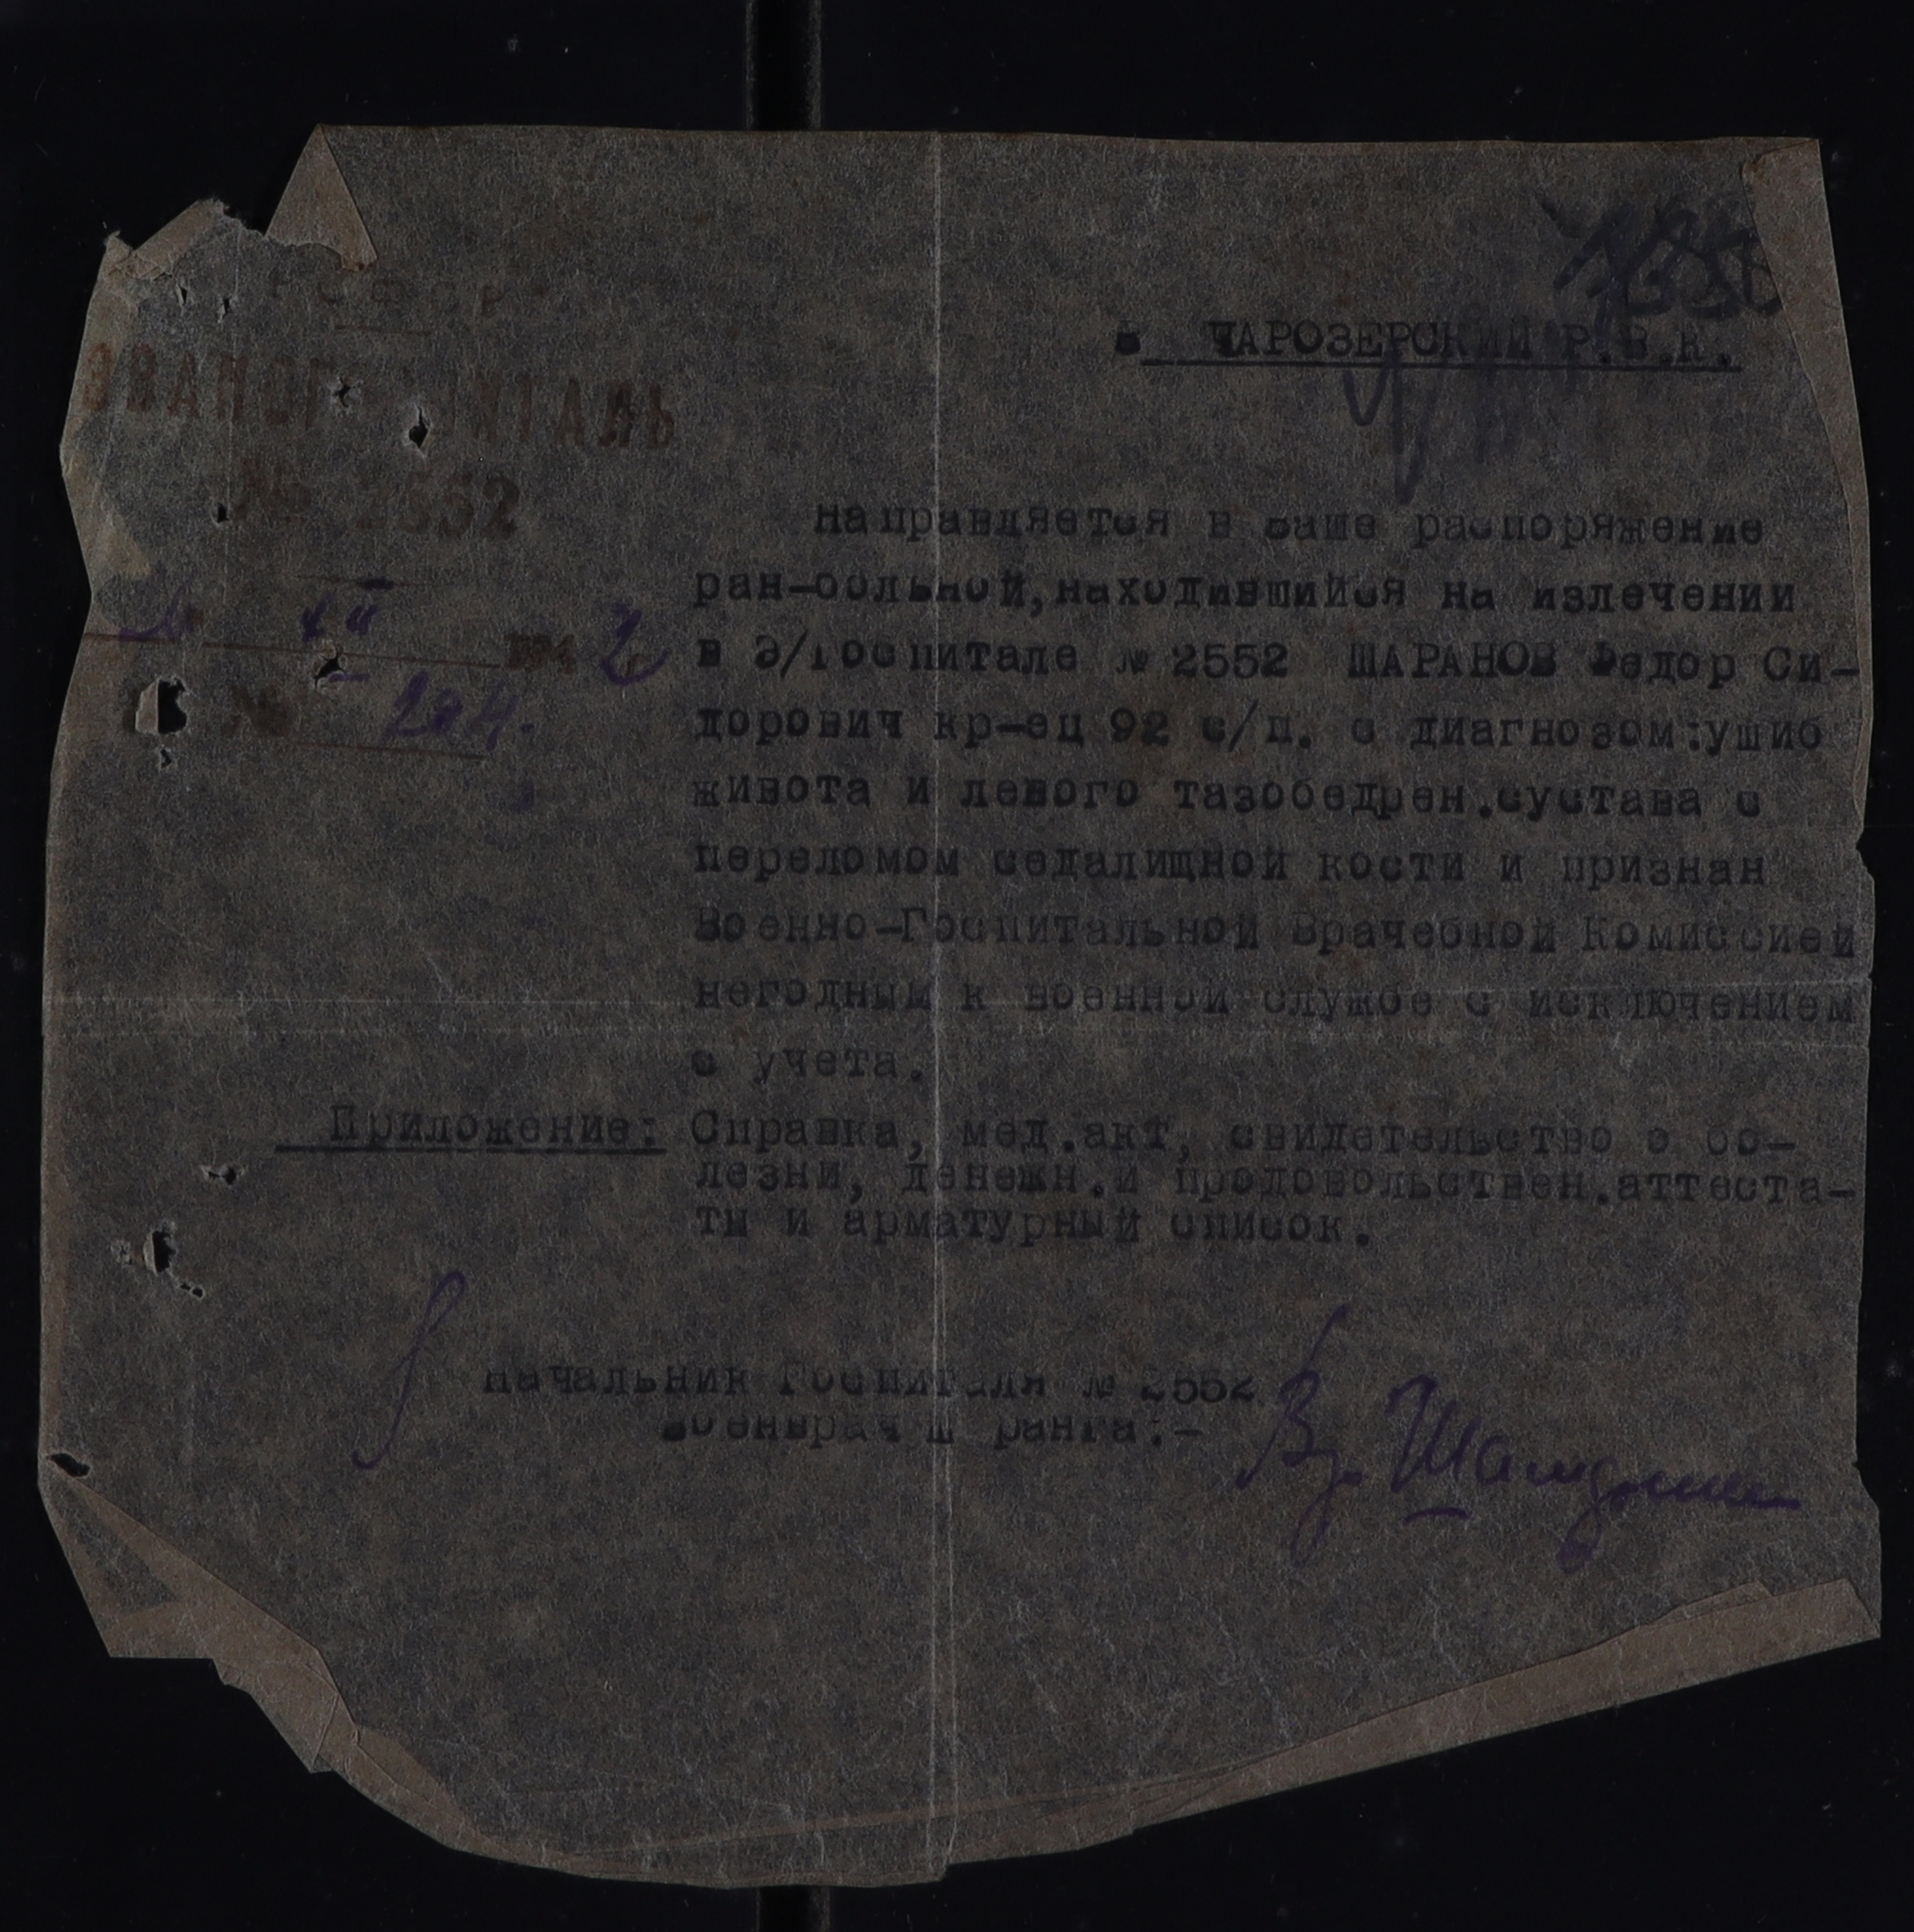 РСФСР
ЭВАКОГОСПИТАЛЬ
№ 2552
XII 1942
№ 204.
В ЧАРОЗЕРСКИЙ Р.В.К.
Направляется в ваше распоряжение
ран-больной, находившийся на излечении
в Э/Госпитале № 2552 ШАРАНОВ Федор Си-
дорович кр-ец 92 с/п. с диагнозом:ушиб
живота и левого тазобедрен.сустава с
переломом седалищной кости и признан
Военно-Госпитальной Врачебной Комиссией
негодным к военной службе с исключением
с учета.
Приложение: Справка, мед.акт, свидетельство о бо-
лезни, денежн.и продовольствен.аттеста-
ты и арматурный список.
Начальник Госпиталя № 2552
Военврач Ш ранга:-